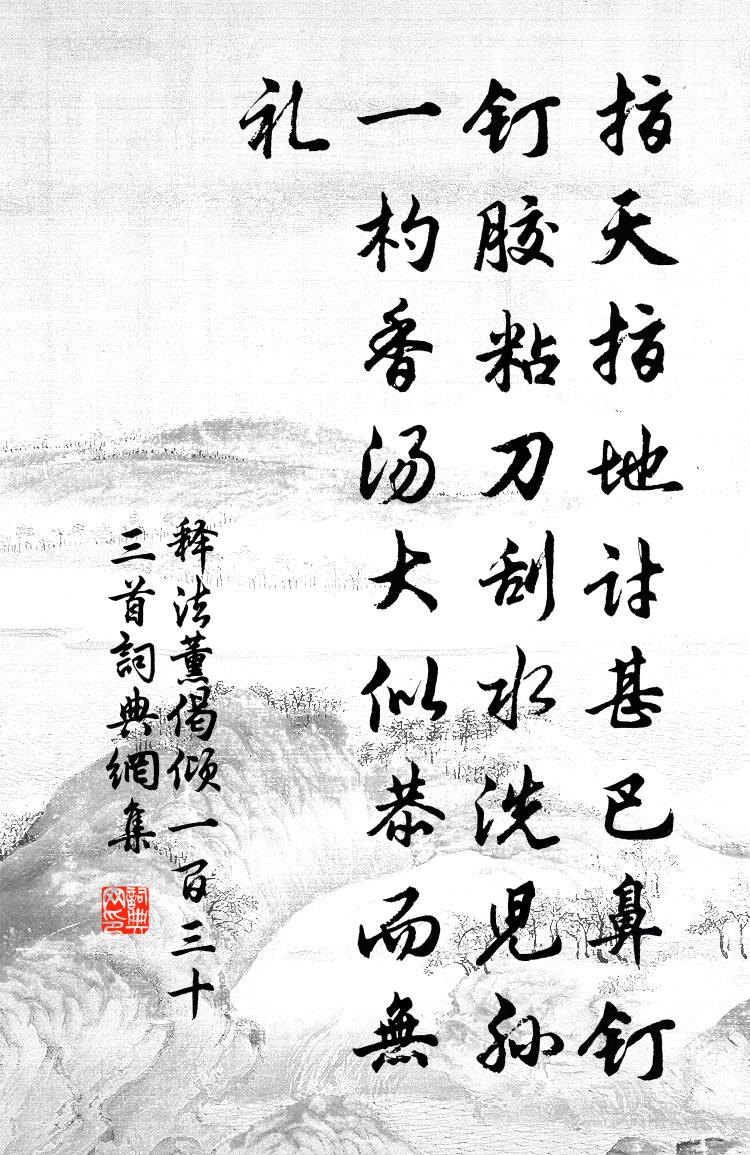 指天指地讨甚巴鼻钉
钉胶粘刀刮水洗儿孙
一杓香汤大似恭而無
礼
释法薰偈倾一百三十
三首詞典網集
詞典網印